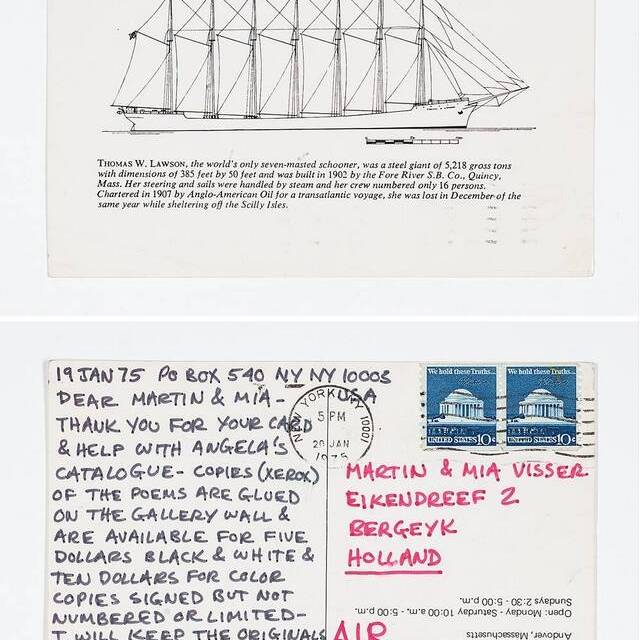 THOMAS W. LAWSON, the world's only seven-masted schooner, was a steel giant of 5,218 gross tons
with dimensions of 385 feet by 50 feet and was built in 1902 by the Fore River S.B. Co., Quincy,
Mass. Her steering and sails were handled by steam and her crew numbered only 16 persons.
Chartered in 1907 by Anglo-American Oil for a transatlantic voyage, she was lost in December of the
same year while sheltering off the Scilly Isles.
19 JAN 75 PO BOX 540 NY NY 10003
USA
DEAR MARTIN & MIA -
THANK YOU FOR YOUR CARD
& HELP WITH ANGELA'S
CATALOGUE - COPIES (XEROX)
OF THE POEMS ARE GLUED
ON THE GALLERY WALL &
ARE AVAILABLE FOR FIVE
DOLLARS BLACK & WHITE &
TEN DOLLARS FOR COLOR
COPIES SIGNED BUT NOT
NUMBERED OR LIMITED -
I WILL KEEP THE ORIGINALS
NEW YORK, NY 10001
5 PM
20 JAN
1975
We hold these Truths...
UNITED STATES 10c
We hold these Truths...
UNITED STATES 10c
MARTIN & MIA VISSER
EIKENDREEF 2
BERGEYK
HOLLAND
AIR
Andover, Massachusetts
Open: Monday - Saturday - 10:00 a.m. - 5:00 p.m.
Sundays 2:30 - 5:00 p.m.